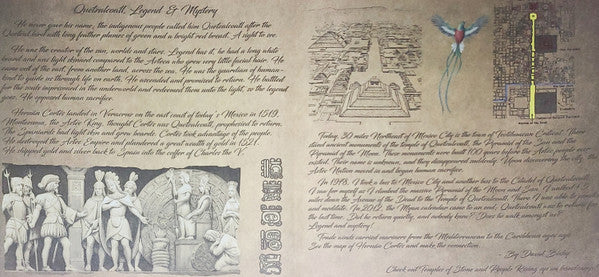 Quetzalcoatl, Legend & Mystery
He never gave his name, the indigenous people called him Quetzalcoatl after the
Quetzal bird with long feather plumes of green and a bright red breast. A sight to see.
He was the creator of the sun, worlds and stars. Legend has it, he had a long white
beard and was light skinned compared to the Aztecs who grew very little facial hair. He
came out of the east, from another land, across the sea. He was the guardian of human-
kind to guide us through life on earth. He ascended and promised to return. He battled
for the souls imprisoned in the underworld and redeemed them into the light, so the legend
goes. He opposed human sacrifice.
Hernán Cortés landed in Veracruz on the east coast of today's Mexico in 1519.
Montezuma, the Aztec King, thought Cortés was Quetzalcoatl, prophesized to return.
The Spaniards had light skin and grew beards. Cortés took advantage of the people.
He destroyed the Aztec Empire and plundered a great wealth of gold in 1521.
He shipped gold and silver back to Spain into the coffers of Charles the V.
Today, 30 miles Northeast of Mexico City is the town of Teotihuacan
stand ancient monuments of the temple of Quetzalcoatl, the Pyramid of the Sun and the
Pyramid of the Moon. These monuments were built
existed. Their name is unknown, and they disappeared suddenly. Upon discovering the city, the
Aztec Nation moved in and began human sacrifice.
In 1978, I took a bus to Mexico City and another bus to the Citadel of Quetzalcoatl.
I saw for myself as I climbed the massive Pyramids of the Moon and Sun. I walked
miles down the Avenue of the Dead to the Temple of Quetzalcoatl. There I was also in awe
and wonder. In 2012, the Mayan calendar came to an end, Quetzalcoatl was to return for
the last time. Did he return quietly, and nobody knew? Does he walk amongst us?
Legend and mystery!
Trade winds carried mariners from the Mediterranean to the Caribbean ages ago.
See the map of Hernán Cortés and make the connection.
By David
Check out Temples of Stone and People Rising up on